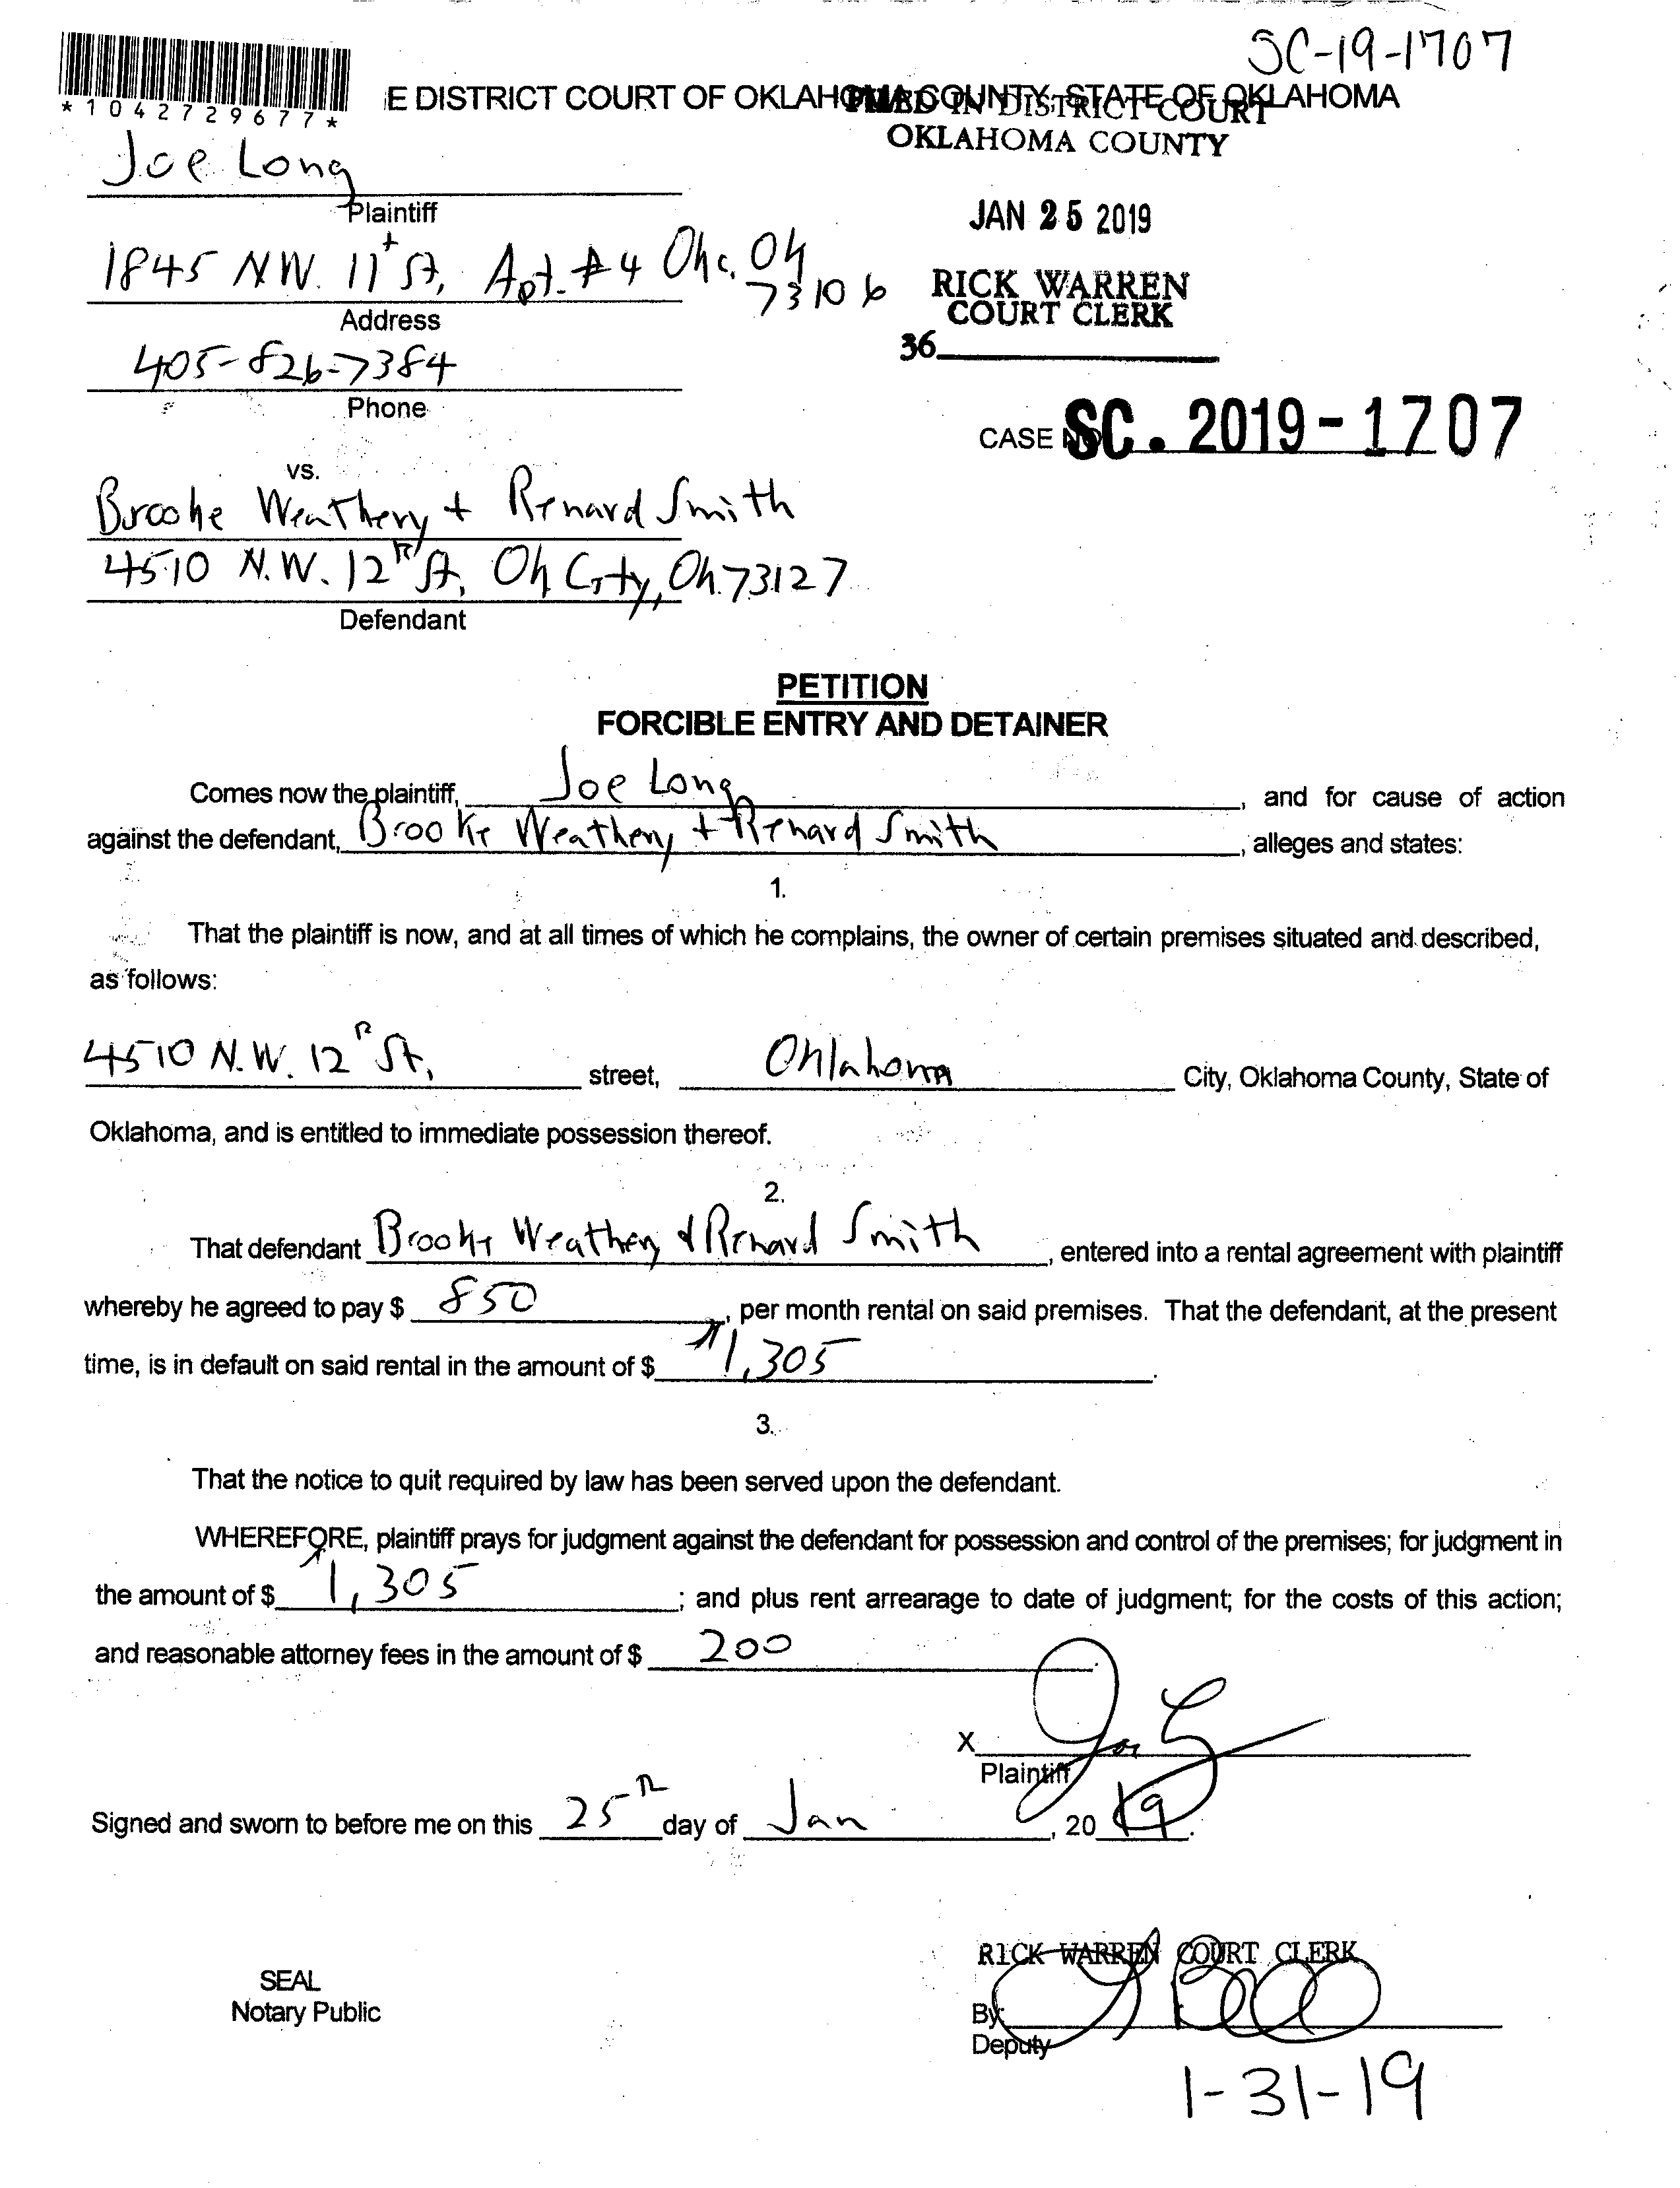 SC-19-1707
*1042729677*
E DISTRICT COURT OF OKLAHOMA COUNTY, STATE OF OKLAHOMA
FILED IN DISTRICT COURT
OKLAHOMA COUNTY
Joe Long
Plaintiff
JAN 25 2019
1845 N.W. 11th St, Apt. #4 Okc, Ok
73106
Address
RICK WARREN
COURT CLERK
36
405-826-7384
Phone
CASE NO SC. 2019-1707
vs.
Brooke Weathery + Renard Smith
4510 N.W. 12th St, Ok City, Ok 73127
Defendant
PETITION
FORCIBLE ENTRY AND DETAINER
Comes now the plaintiff, Joe Long, and for cause of action
against the defendant, Brooke Weathery + Renard Smith, alleges and states:
1.
That the plaintiff is now, and at all times of which he complains, the owner of certain premises situated and described,
as follows:
4510 N.W. 12th St, street, Oklahoma City, Oklahoma County, State of
Oklahoma, and is entitled to immediate possession thereof.
2.
That defendant Brooke Weathery & Renard Smith, entered into a rental agreement with plaintiff
whereby he agreed to pay $ 850, per month rental on said premises. That the defendant, at the present
time, is in default on said rental in the amount of $ 1,305.
3.
That the notice to quit required by law has been served upon the defendant.
WHEREFORE, plaintiff prays for judgment against the defendant for possession and control of the premises; for judgment in
the amount of $ 1,305; and plus rent arrearage to date of judgment; for the costs of this action;
and reasonable attorney fees in the amount of $ 200.
X
Plaintiff
Signed and sworn to before me on this 25th day of Jan, 2019.
RICK WARREN COURT CLERK
SEAL
Notary Public
By:
Deputy
1-31-19